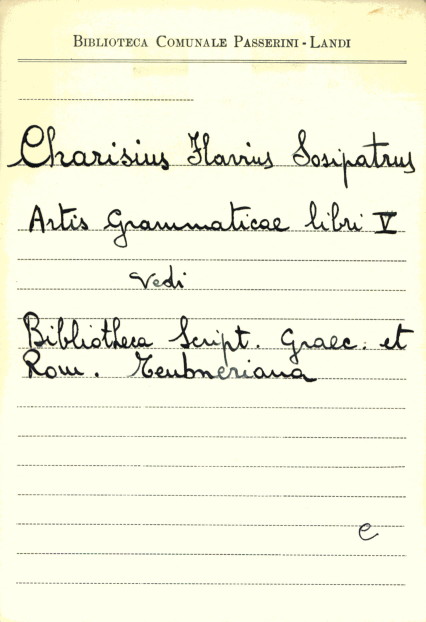 Biblioteca Comunale Passerini - Landi
Charisius Flavius Sosipatrus
Artis Grammaticae libri V
Vedi
Bibliotheca Script. Graec. et
Rom. Teubneriana
e